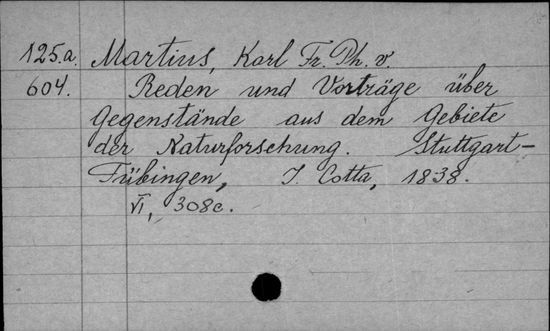 125.a. Martius, Karl Fr. Ph. v.
604. Reden und Vorträge über
Gegenstände aus dem Gebiete
der Naturforschung. Stuttgart-
Tübingen, J. Cotta, 1838.
VI, 308c.